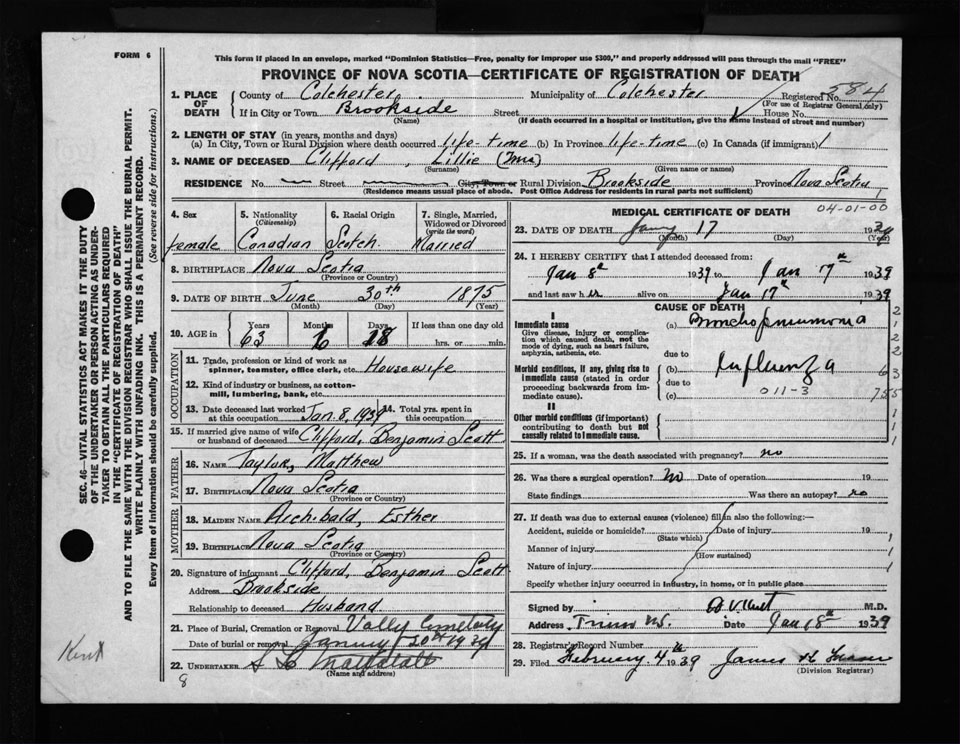 FORM 6
This form if placed in an envelope, marked "Dominion Statistics—Free, penalty for improper use $300," and properly addressed will pass through the mail "FREE"
PROVINCE OF NOVA SCOTIA—CERTIFICATE OF REGISTRATION OF DEATH
SEC. 46—VITAL STATISTICS ACT MAKES IT THE DUTY
OF THE UNDERTAKER OR PERSON ACTING AS UNDER-
TAKER TO OBTAIN ALL THE PARTICULARS REQUIRED
IN THE "CERTIFICATE OF REGISTRATION OF DEATH"
AND TO FILE THE SAME WITH THE DIVISION REGISTRAR WHO SHALL ISSUE THE BURIAL PERMIT.
WRITE PLAINLY WITH UNFADING INK. THIS IS A PERMANENT RECORD.
Every item of information should be carefully supplied. (See reverse side for instructions.)
1. PLACE OF DEATH
County of Colchester Municipality of Colchester Registered No. 584
(For use of Registrar General only)
If in City or Town Brookside Street House No.
(Name) (If death occurred in a hospital or institution, give the name instead of street and number)
2. LENGTH OF STAY (in years, months and days)
(a) In City, Town or Rural Division where death occurred life-time (b) In Province life-time (c) In Canada (if immigrant)
3. NAME OF DECEASED Clifford, Lillie (Mrs)
(Surname) (Given name or names)
RESIDENCE No. Street City, Town or Rural Division Brookside Province Nova Scotia
(Residence means usual place of abode. Post Office Address for residents in rural parts not sufficient)
4. Sex female
5. Nationality (Citizenship) Canadian
6. Racial Origin Scotch
7. Single, Married, Widowed or Divorced (write the word) Married
8. BIRTHPLACE Nova Scotia
(Province or Country)
9. DATE OF BIRTH June 30th 1875
(Month) (Day) (Year)
10. AGE in Years 63 Months 6 Days 18 If less than one day old hrs. or min.
OCCUPATION
11. Trade, profession or kind of work as spinner, teamster, office clerk, etc. Housewife
12. Kind of industry or business, as cotton-mill, lumbering, bank, etc.
13. Date deceased last worked at this occupation Jan. 8, 1939 14. Total yrs. spent in this occupation
15. If married give name of wife or husband of deceased Clifford, Benjamin Scott
FATHER
16. NAME Taylor, Matthew
17. BIRTHPLACE Nova Scotia
(Province or Country)
MOTHER
18. MAIDEN NAME Archibald, Esther
19. BIRTHPLACE Nova Scotia
(Province or Country)
20. Signature of informant Clifford, Benjamin Scott
Address Brookside
Relationship to deceased Husband
21. Place of Burial, Cremation or Removal Vally Cemetary
Date of burial or removal January 20th 1939
22. UNDERTAKER
(Name and address)
Kent
8
MEDICAL CERTIFICATE OF DEATH
04-01-00
23. DATE OF DEATH Jany 17 1939
(Month) (Day) (Year)
24. I HEREBY CERTIFY that I attended deceased from:
Jan 8th 1939 to Jan 17th 1939
and last saw her alive on Jan 17th 1939
CAUSE OF DEATH
I
Immediate cause
Give disease, injury or complication which caused death, not the mode of dying, such as heart failure, asphyxia, asthenia, etc.
(a) Bronchopneumonia
due to
Morbid conditions, if any, giving rise to immediate cause (stated in order proceeding backwards from immediate cause).
(b) Influenza
due to 011-3
(c)
II
Other morbid conditions (if important) contributing to death but not causally related to immediate cause.
25. If a woman, was the death associated with pregnancy? no
26. Was there a surgical operation? No Date of operation 19
State findings Was there an autopsy? no
27. If death was due to external causes (violence) fill in also the following:—
Accident, suicide or homicide? Date of injury 19
(State which)
Manner of injury
(How sustained)
Nature of injury
Specify whether injury occurred in industry, in home, or in public place
Signed by M.D.
Address Truro N.S. Date Jan 18th 1939
28. Registrar's Record Number
29. Filed February 4th 1939 James
(Division Registrar)